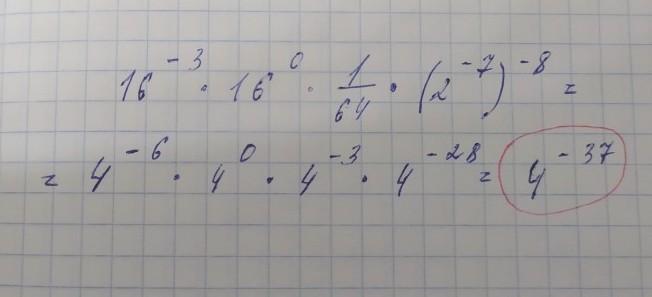 16⁻³ · 16⁰ · 1/64 · (2⁻⁷)⁻⁸ =
= 4⁻⁶ · 4⁰ · 4⁻³ · 4⁻²⁸ = 4⁻³⁷